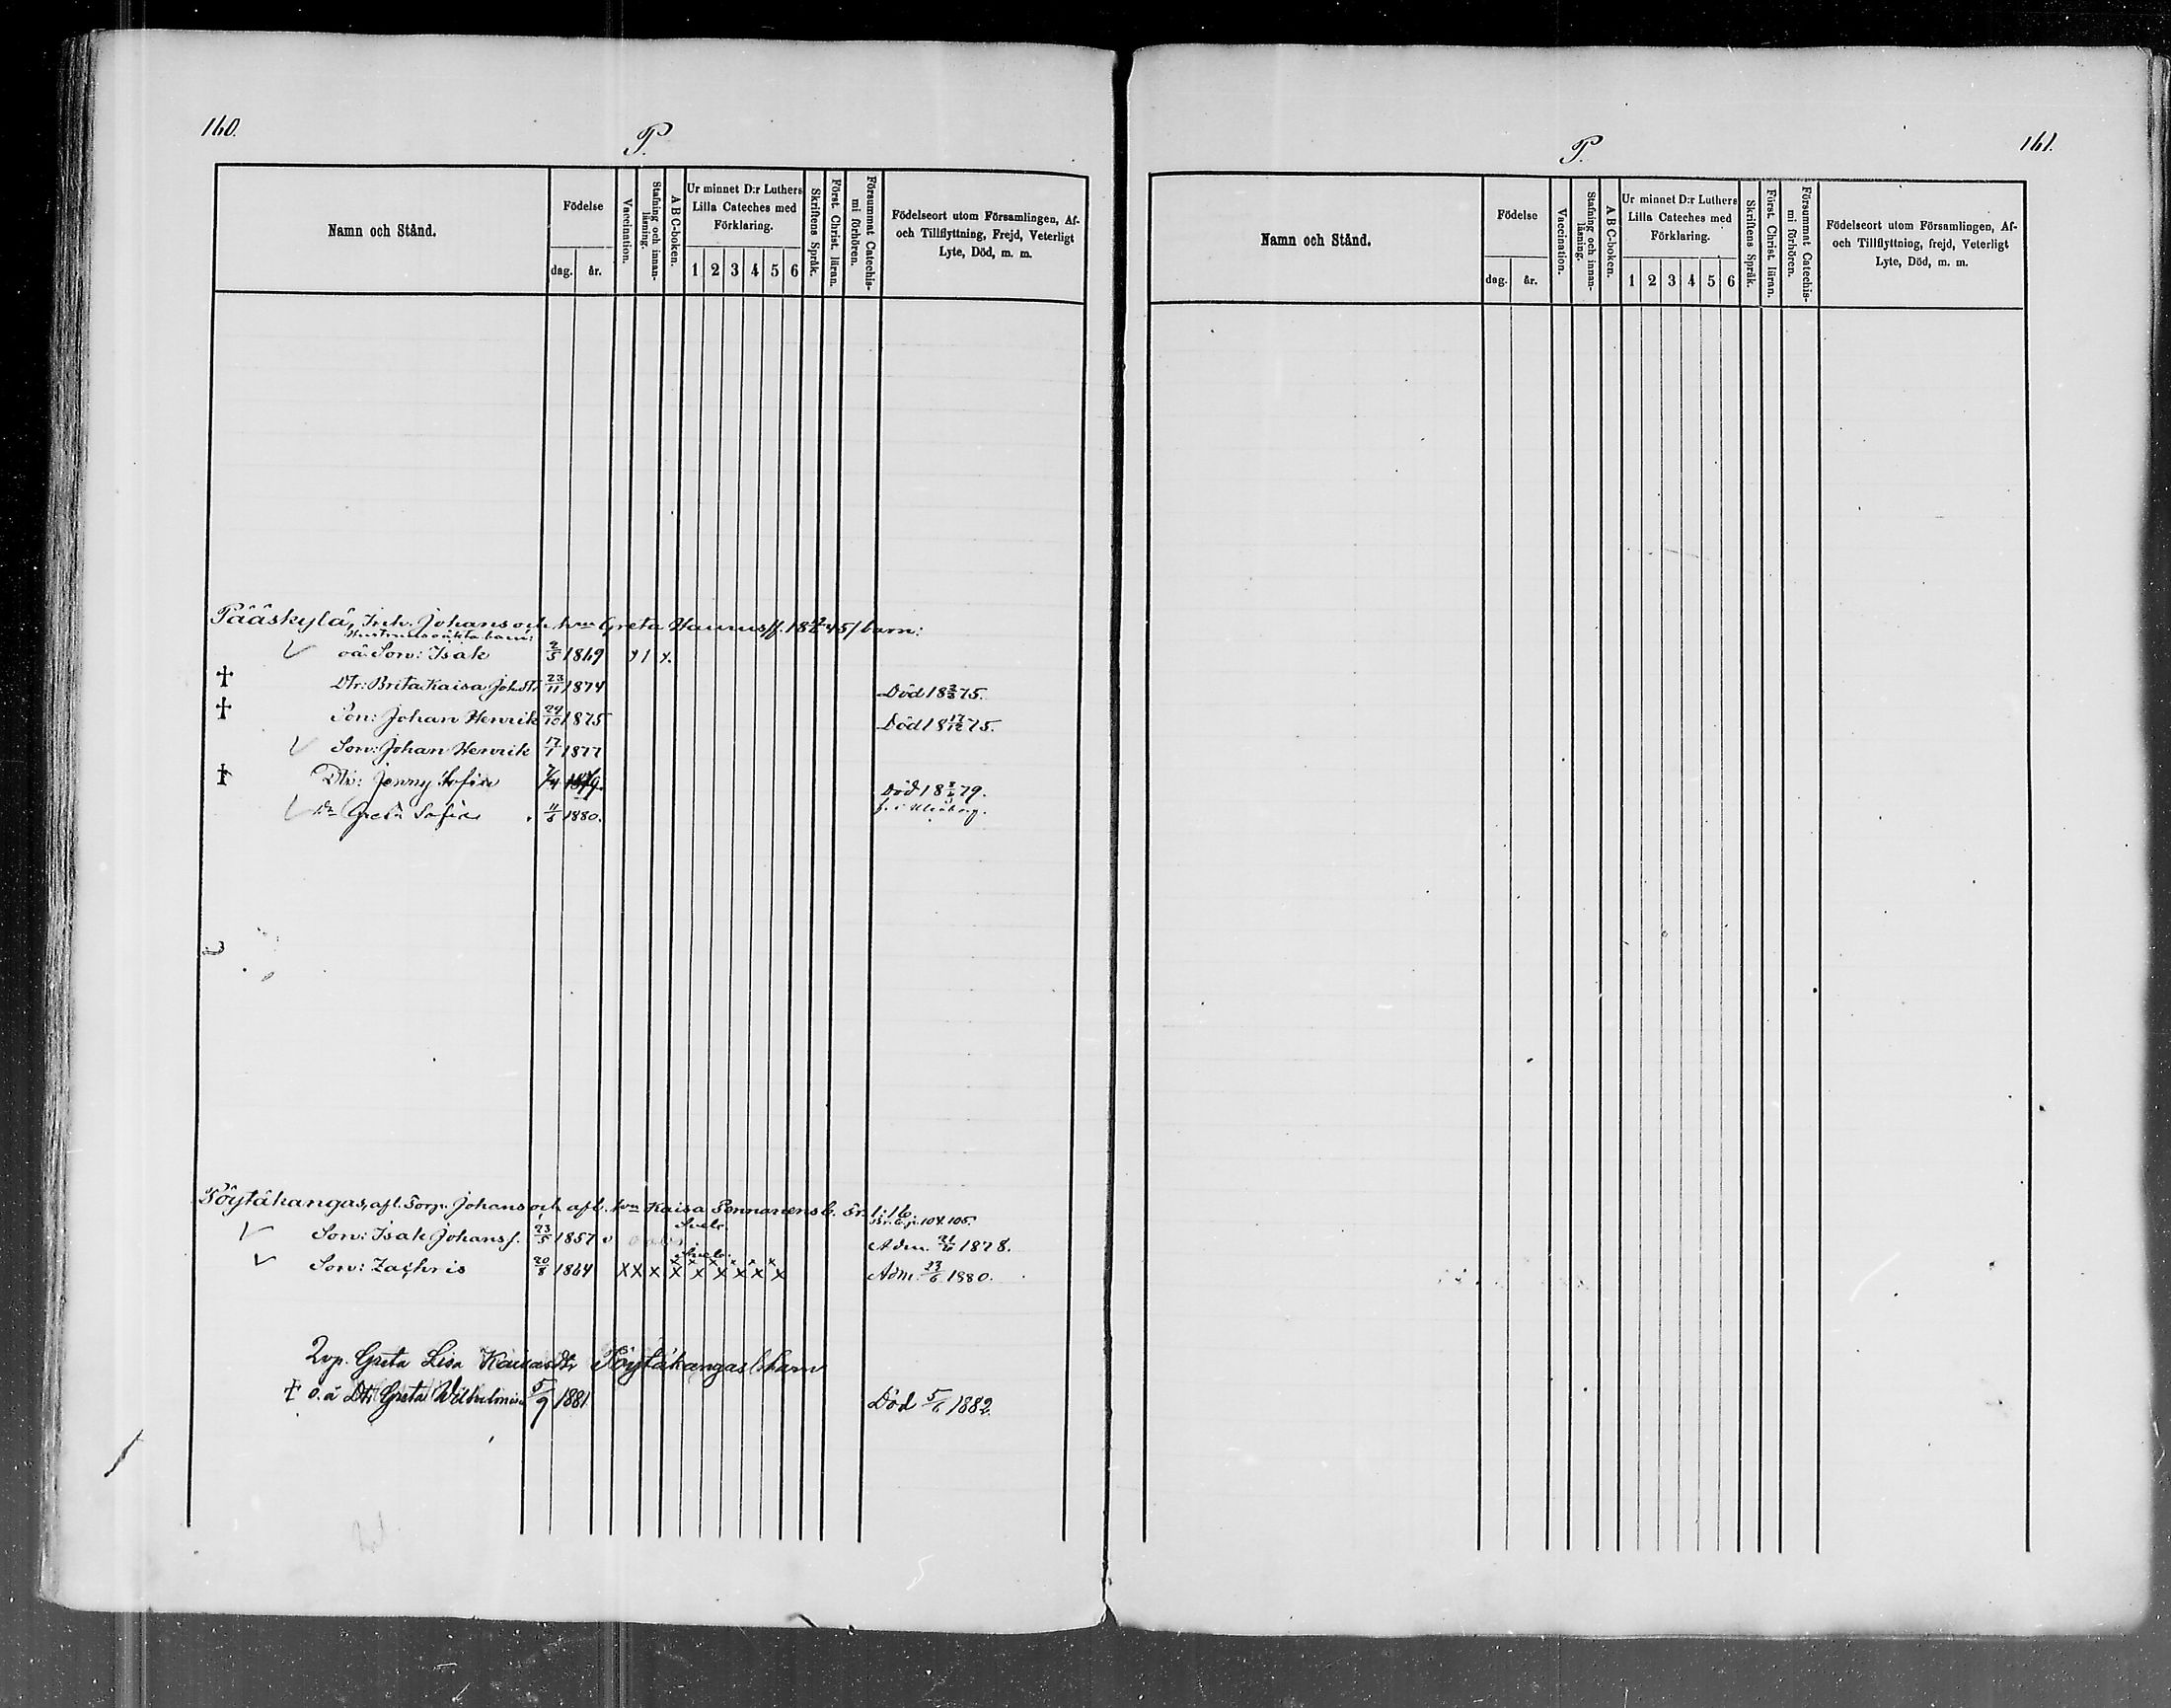 160.
P.
Namn och Stånd.
Födelse
dag.
år.
Vaccination.
Stafning och innan-
läsning.
A B C-boken.
Ur minnet D:r Luthers
Lilla Cateches med
Förklaring.
1 2 3 4 5 6
Skriftens Språk.
Först. Christ. läran.
Försummat Catechis-
mi förhören.
Födelseort utom Församlingen, Af-
och Tillflyttning, Frejd, Veterligt
Lyte, Död, m. m.
Pääskylä, Inh. Johans och hn Greta barn:
oä. Son: Isak 2/5 1869 x 1 x.
† Dtr: Brita Kaisa Johdtr 23/11 1874 Död 18 75.
† Son: Johan Henrik 29/10 1875 Död 18 17/12 75.
Son: Johan Henrik 17/1 1877
† Dtr: Jenny Sofia 7/4 1879. Död 18 79.
Dr Greta Sofia 11/8 1880. f. i Uleåborg.
Pöytäkangas, afl. Torp. Johans och afl. hn Kaisa Ponnanens b.
Son: Isak Johans s. 23/5 1857 v Adm. 21/6 1878.
104. 105.
Son: Zachris 20/8 1864 x x x x x x x x x Adm. 23/6 1880.
Greta Lisa Pöytäkangas barn
† o.ä Dtr Greta Wilhelmina 5/9 1881. Död 5/6 1882.
161.
P.
Namn och Stånd.
Födelse
dag.
år.
Vaccination.
Stafning och innan-
läsning.
A B C-boken.
Ur minnet D:r Luthers
Lilla Cateches med
Förklaring.
1 2 3 4 5 6
Skriftens Språk.
Först. Christ. läran.
Försummat Catechis-
mi förhören.
Födelseort utom Församlingen, Af-
och Tillflyttning, frejd, Veterligt
Lyte, Död, m. m.